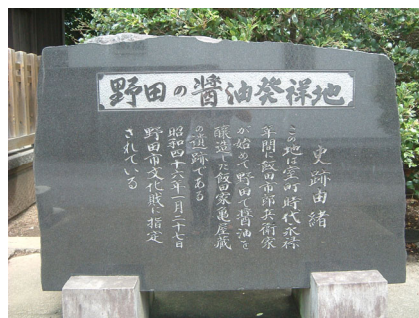 野田の醬油発祥地
史跡由緒
この地は室町時代永禄
年間に飯田市郎兵衛家
が始めて野田で醤油を
醸造した飯田家亀屋蔵
の遺跡である
昭和四十六年一月二十七日
野田市文化財に指定
されている